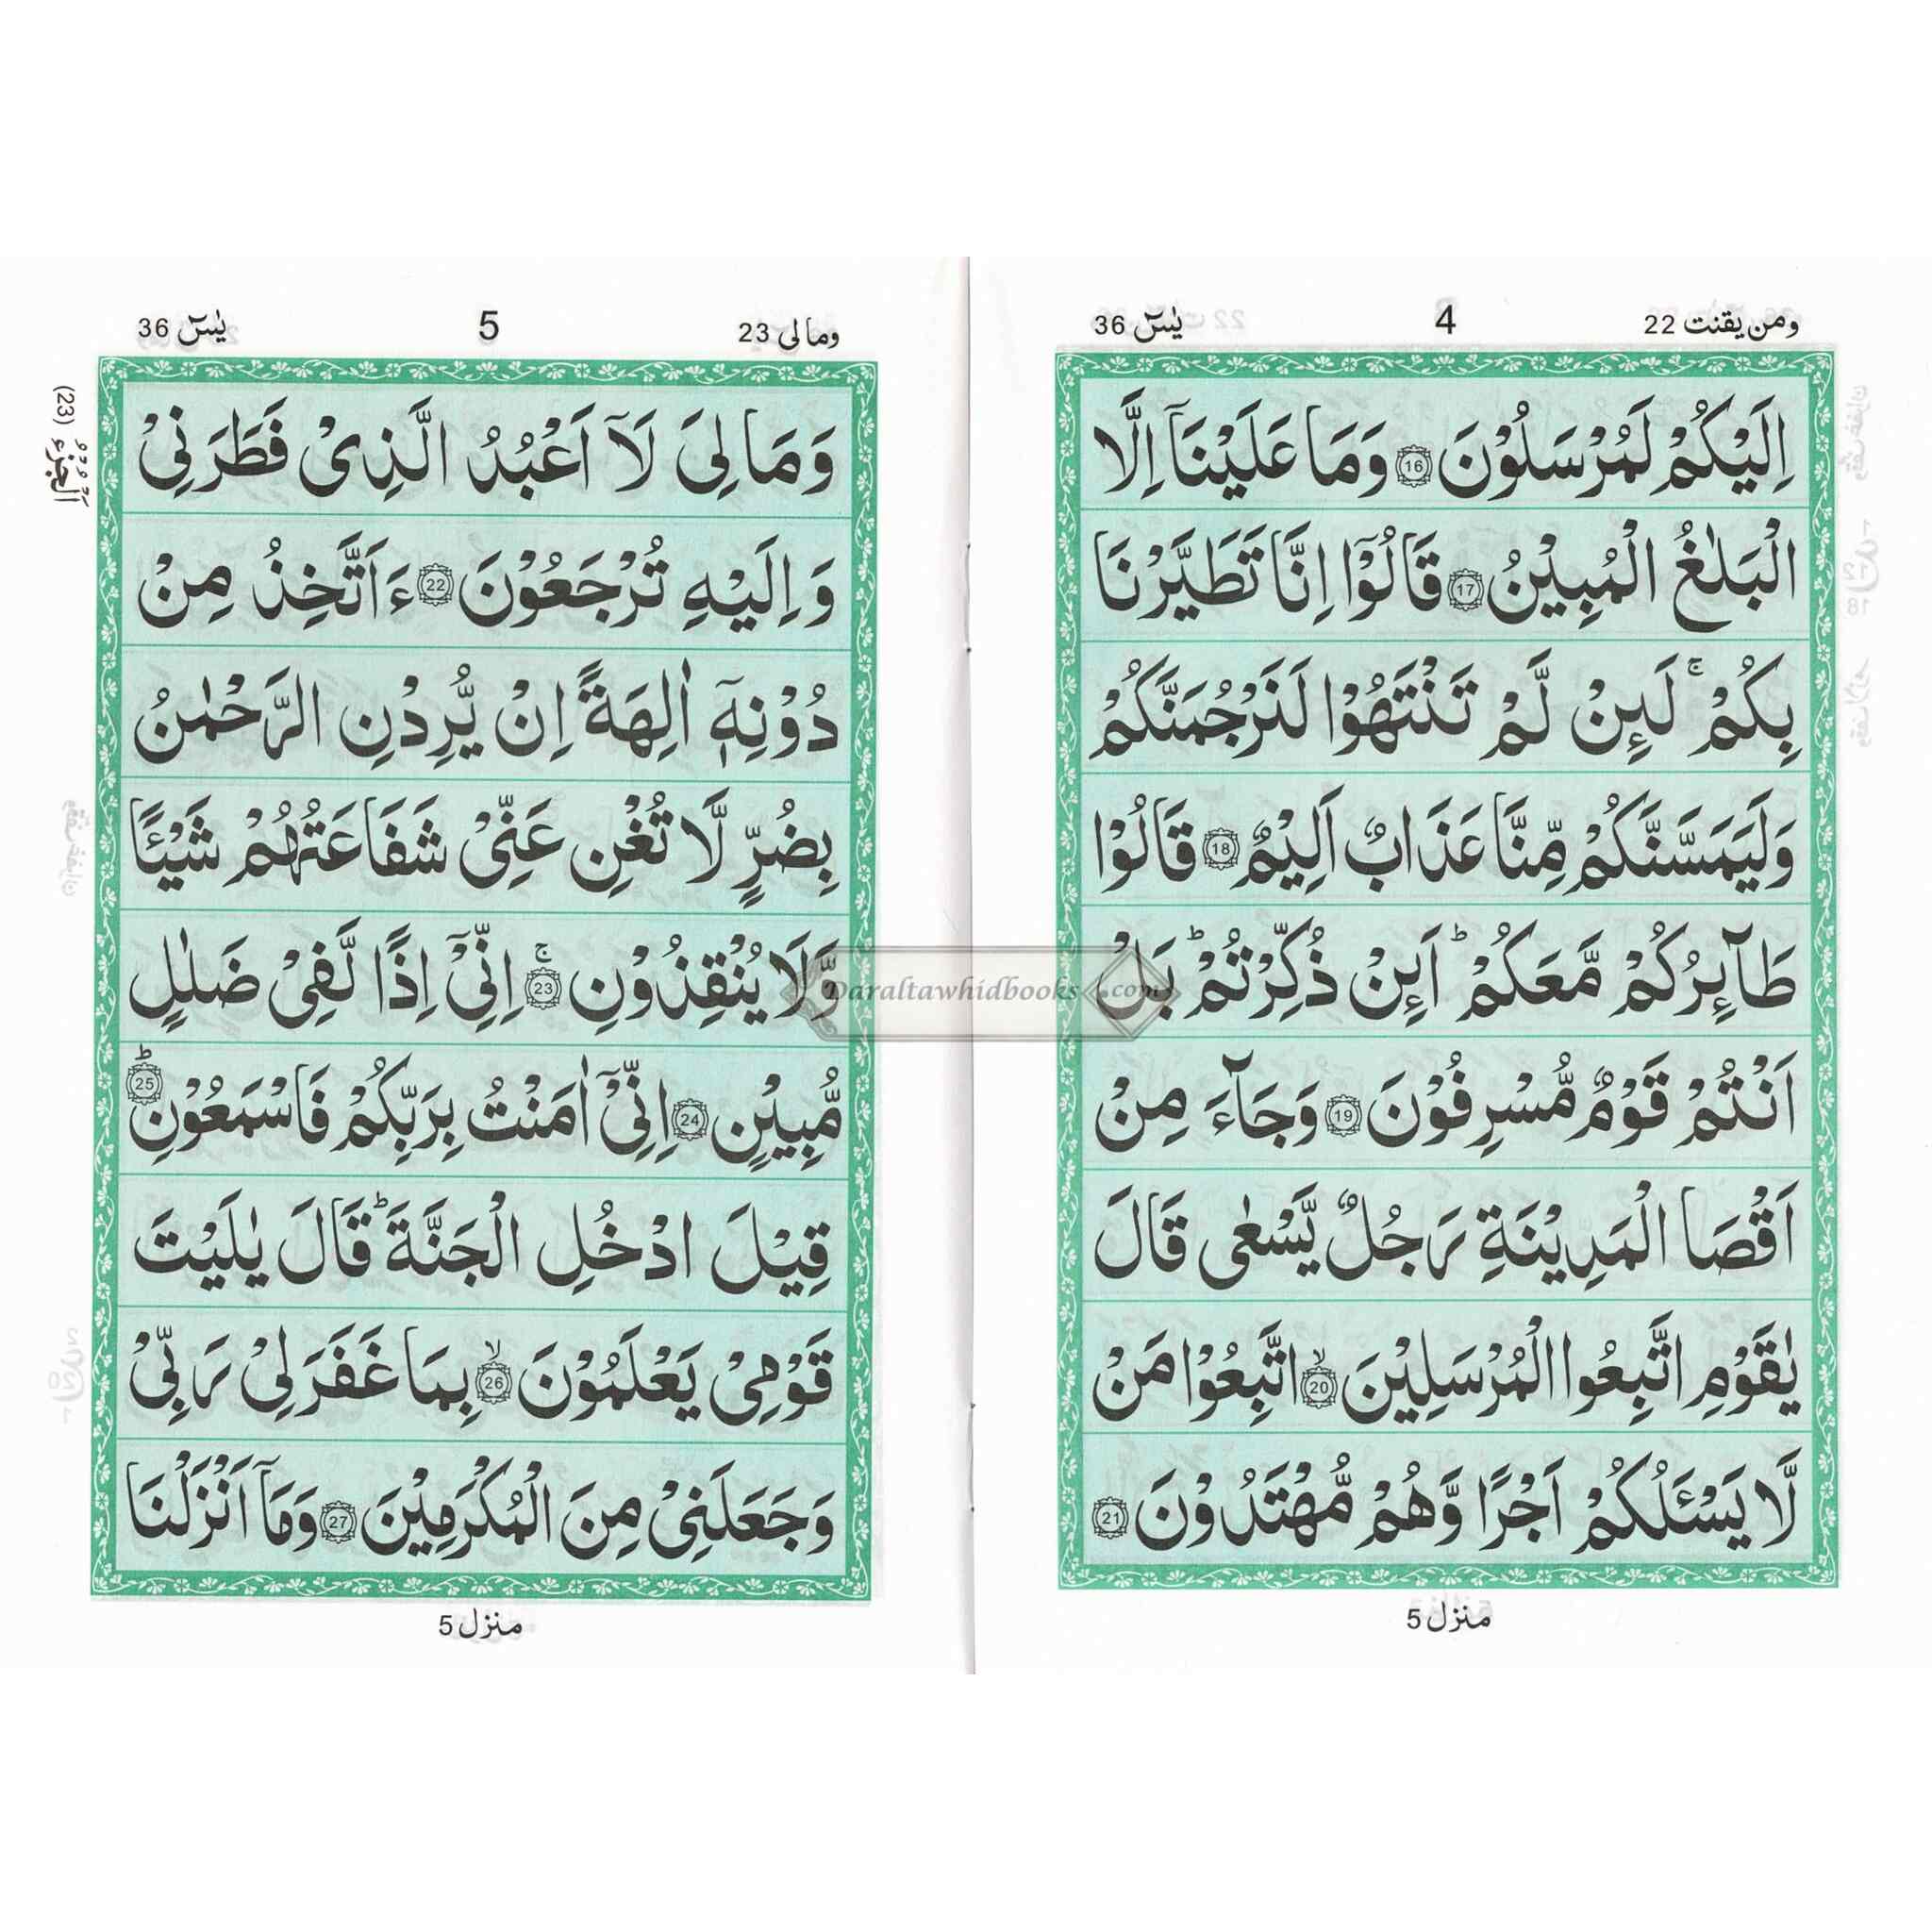 ومن يقنت 22
4
يٰسٓ 36
اِلَيْكُمْ لَمُرْسَلُوْنَ 16 وَمَا عَلَيْنَآ اِلَّا
الْبَلٰغُ الْمُبِيْنُ 17 قَالُوْٓا اِنَّا تَطَيَّرْنَا
بِكُمْ ۚ لَىِٕنْ لَّمْ تَنْتَهُوْا لَنَرْجُمَنَّكُمْ
وَلَيَمَسَّنَّكُمْ مِّنَّا عَذَابٌ اَلِيْمٌ 18 قَالُوْا
طَآىِٕرُكُمْ مَّعَكُمْ ؕ اَىِٕنْ ذُكِّرْتُمْ ؕ بَلْ
اَنْتُمْ قَوْمٌ مُّسْرِفُوْنَ 19 وَجَآءَ مِنْ
اَقْصَا الْمَدِيْنَةِ رَجُلٌ يَّسْعٰى قَالَ
يٰقَوْمِ اتَّبِعُوا الْمُرْسَلِيْنَ ۙ 20 اتَّبِعُوْا مَنْ
لَّا يَسْـَٔلُكُمْ اَجْرًا وَّهُمْ مُّهْتَدُوْنَ 21
منزل 5
ومالى 23
5
يٰسٓ 36
اَلْجُزْءُ (23)
وَمَا لِىَ لَآ اَعْبُدُ الَّذِىْ فَطَرَنِىْ
وَاِلَيْهِ تُرْجَعُوْنَ 22 ءَاَتَّخِذُ مِنْ
دُوْنِهٖٓ اٰلِهَةً اِنْ يُّرِدْنِ الرَّحْمٰنُ
بِضُرٍّ لَّا تُغْنِ عَنِّىْ شَفَاعَتُهُمْ شَيْـًٔا
وَّلَا يُنْقِذُوْنِ ۚ 23 اِنِّىْٓ اِذًا لَّفِىْ ضَلٰلٍ
مُّبِيْنٍ 24 اِنِّىْٓ اٰمَنْتُ بِرَبِّكُمْ فَاسْمَعُوْنِ ؕ 25
قِيْلَ ادْخُلِ الْجَنَّةَ ؕ قَالَ يٰلَيْتَ
قَوْمِىْ يَعْلَمُوْنَ ۙ 26 بِمَا غَفَرَ لِىْ رَبِّىْ
وَجَعَلَنِىْ مِنَ الْمُكْرَمِيْنَ 27 وَمَآ اَنْزَلْنَا
منزل 5
Daraltawhidbooks.com